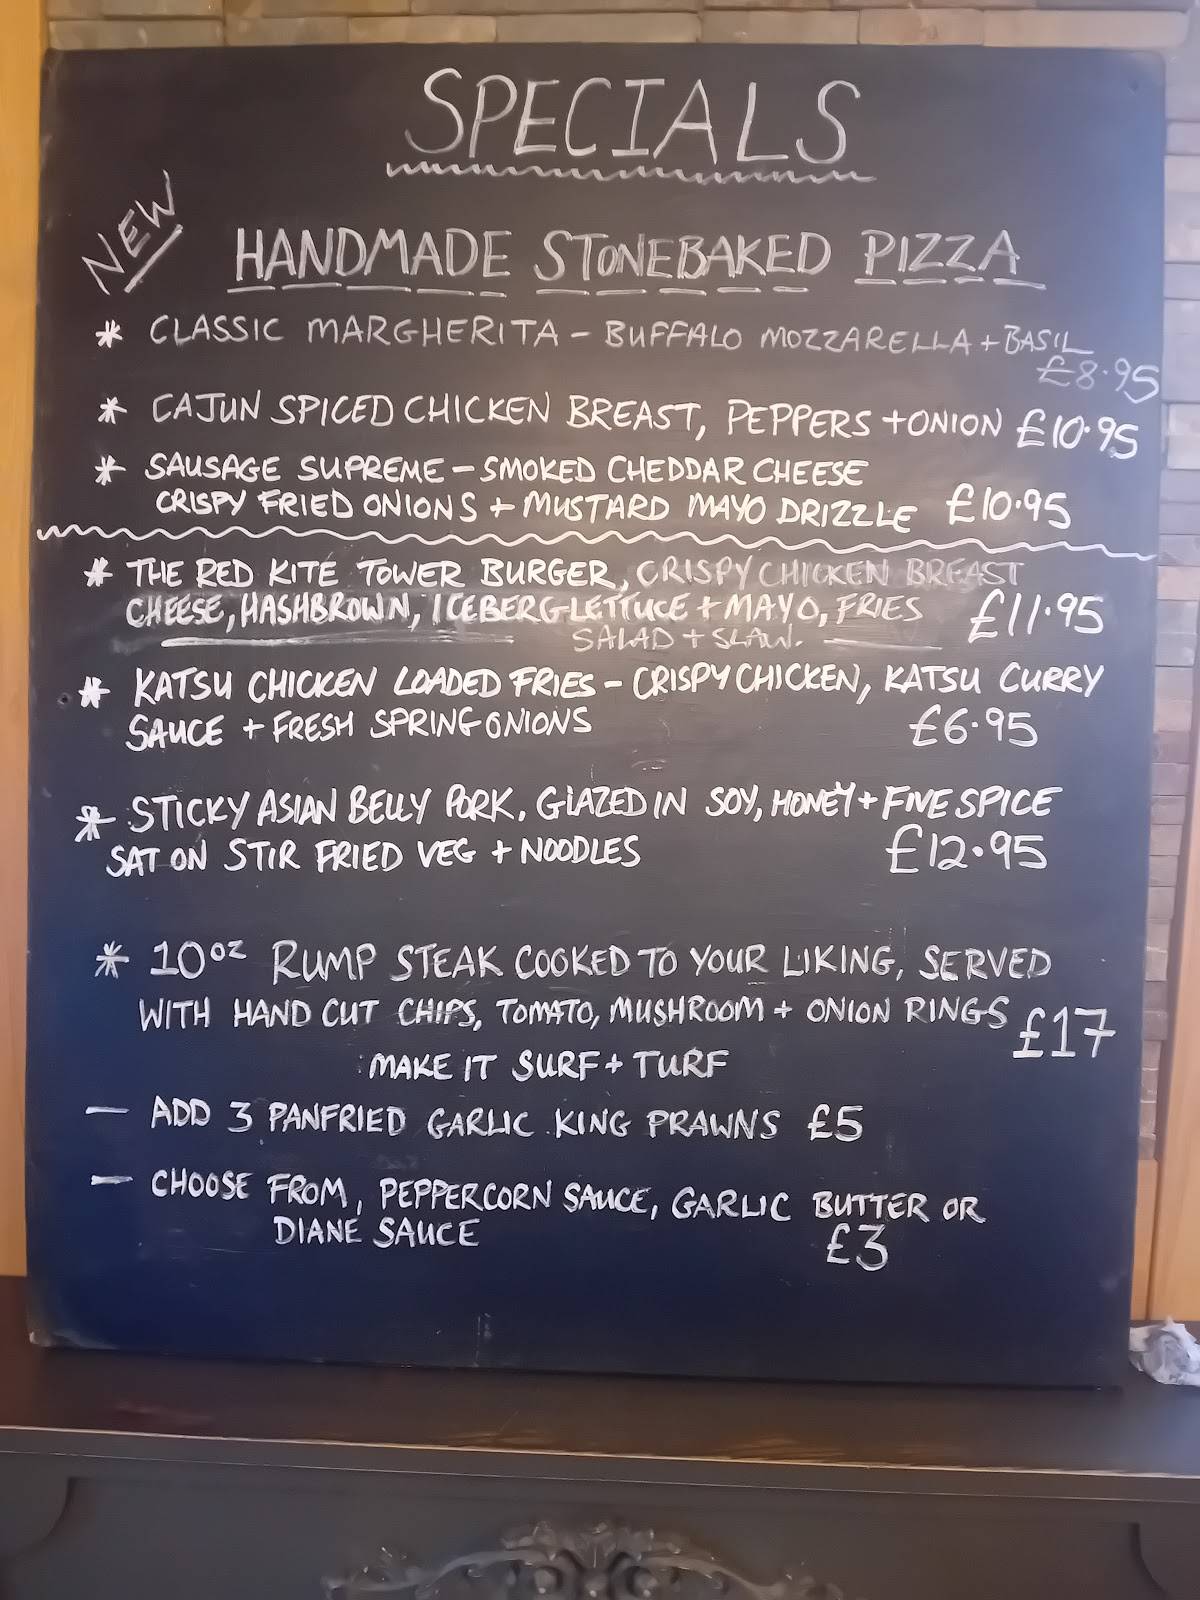 SPECIALS
NEW
HANDMADE STONEBAKED PIZZA
* CLASSIC MARGHERITA - BUFFALO MOZZARELLA + BASIL
£8.95
* CAJUN SPICED CHICKEN BREAST, PEPPERS + ONION £10.95
* SAUSAGE SUPREME - SMOKED CHEDDAR CHEESE
CRISPY FRIED ONIONS + MUSTARD MAYO DRIZZLE £10.95
* THE RED KITE TOWER BURGER, CRISPY CHICKEN BREAST
CHEESE, HASHBROWN, ICEBERG LETTUCE + MAYO, FRIES £11.95
SALAD + SLAW.
* KATSU CHICKEN LOADED FRIES - CRISPY CHICKEN, KATSU CURRY
SAUCE + FRESH SPRING ONIONS £6.95
* STICKY ASIAN BELLY PORK, GLAZED IN SOY, HONEY + FIVE SPICE
SAT ON STIR FRIED VEG + NOODLES £12.95
* 10oz RUMP STEAK COOKED TO YOUR LIKING, SERVED
WITH HAND CUT CHIPS, TOMATO, MUSHROOM + ONION RINGS £17
MAKE IT SURF + TURF
- ADD 3 PANFRIED GARLIC KING PRAWNS £5
- CHOOSE FROM, PEPPERCORN SAUCE, GARLIC BUTTER OR
DIANE SAUCE £3